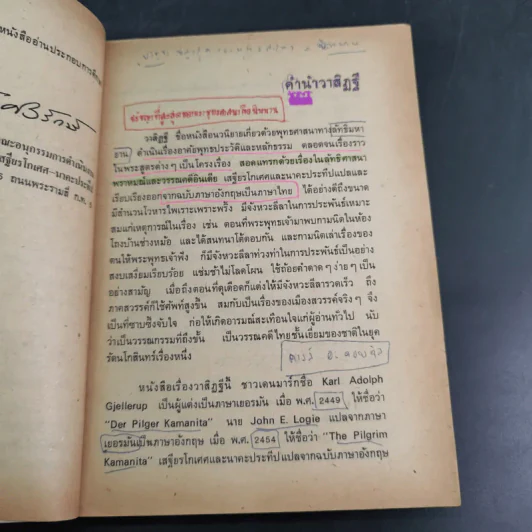 หนังสืออ่านประกอบการศึกษา
คำนำวาสิฏฐี
วาสิฏฐี ชื่อหนังสือนวนิยายเกี่ยวด้วยพุทธศาสนาทางลัทธิมหา
ยาน ดำเนินเรื่องอาศัยพุทธประวัติและหลักธรรม ตลอดจนเรื่องราว
ในพระสูตรต่าง ๆ เป็นโครงเรื่อง สอดแทรกด้วยเรื่องในลัทธิศาสนา
พราหมณ์และวรรณคดีอินเดีย เสฐียรโกเศศและนาคะประทีปแปลและ
เรียบเรียงออกจากฉบับภาษาอังกฤษเป็นภาษาไทย ได้อย่างดีถึงขนาด
มีสำนวนโวหารไพเราะเพราะพริ้ง มีจังหวะลีลาในการประพันธ์เหมาะ
สมแก่เหตุการณ์ในเรื่อง เช่น ตอนที่พระพุทธเจ้ามาพบกามนิตในห้อง
โถงบ้านช่างหม้อ และได้สนทนาโต้ตอบกัน และกามนิตเล่าเรื่องของ
ตนให้พระพุทธเจ้าฟัง ก็มีจังหวะลีลาท่วงท่าในการประพันธ์เป็นอย่าง
สงบเสงี่ยมเรียบร้อย แช่มช้าไม่โลดโผน ใช้ถ้อยคำดาด ๆ ง่าย ๆ เป็น
อย่างสามัญ เมื่อถึงตอนที่ดุเดือดก็แต่งให้มีจังหวะลีลารวดเร็ว ถึง
ภาคสวรรค์ก็ใช้ศัพท์สูงขึ้น สมกับเป็นเรื่องของเมืองสวรรค์จริง ๆ จึง
เป็นที่ซาบซึ้งจับใจ ก่อให้เกิดอารมณ์สะเทือนใจแก่ผู้อ่านทั่วไป นับ
ว่าเป็นวรรณกรรมที่ถึงขั้น เป็นวรรณคดีไทยชั้นเยี่ยมของชาติในยุค
รัตนโกสินทร์เรื่องหนึ่ง
หนังสือเรื่องวาสิฏฐีนี้ ชาวเดนมาร์กชื่อ Karl Adolph
Gjellerup เป็นผู้แต่งเป็นภาษาเยอรมัน เมื่อ พ.ศ. 2449 ให้ชื่อว่า
"Der Pilger Kamanita" นาย John E. Logie แปลจากภาษา
เยอรมันเป็นภาษาอังกฤษ เมื่อ พ.ศ. 2454 ให้ชื่อว่า "The Pilgrim
Kamanita" เสฐียรโกเศศและนาคะประทีปแปลจากฉบับภาษาอังกฤษ